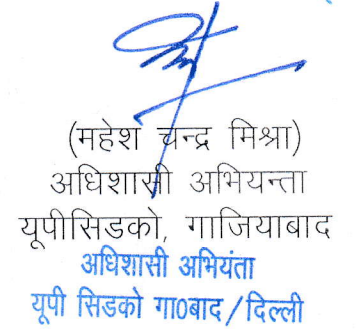 (महेश चन्द्र मिश्रा)
अधिशासी अभियन्ता
यूपीसिडको, गाजियाबाद
अधिशासी अभियंता
यूपी सिडको गा0बाद/दिल्ली